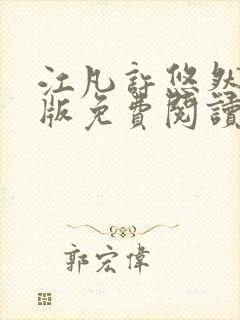 江凡許悠然
版免費閱讀
郭宏偉